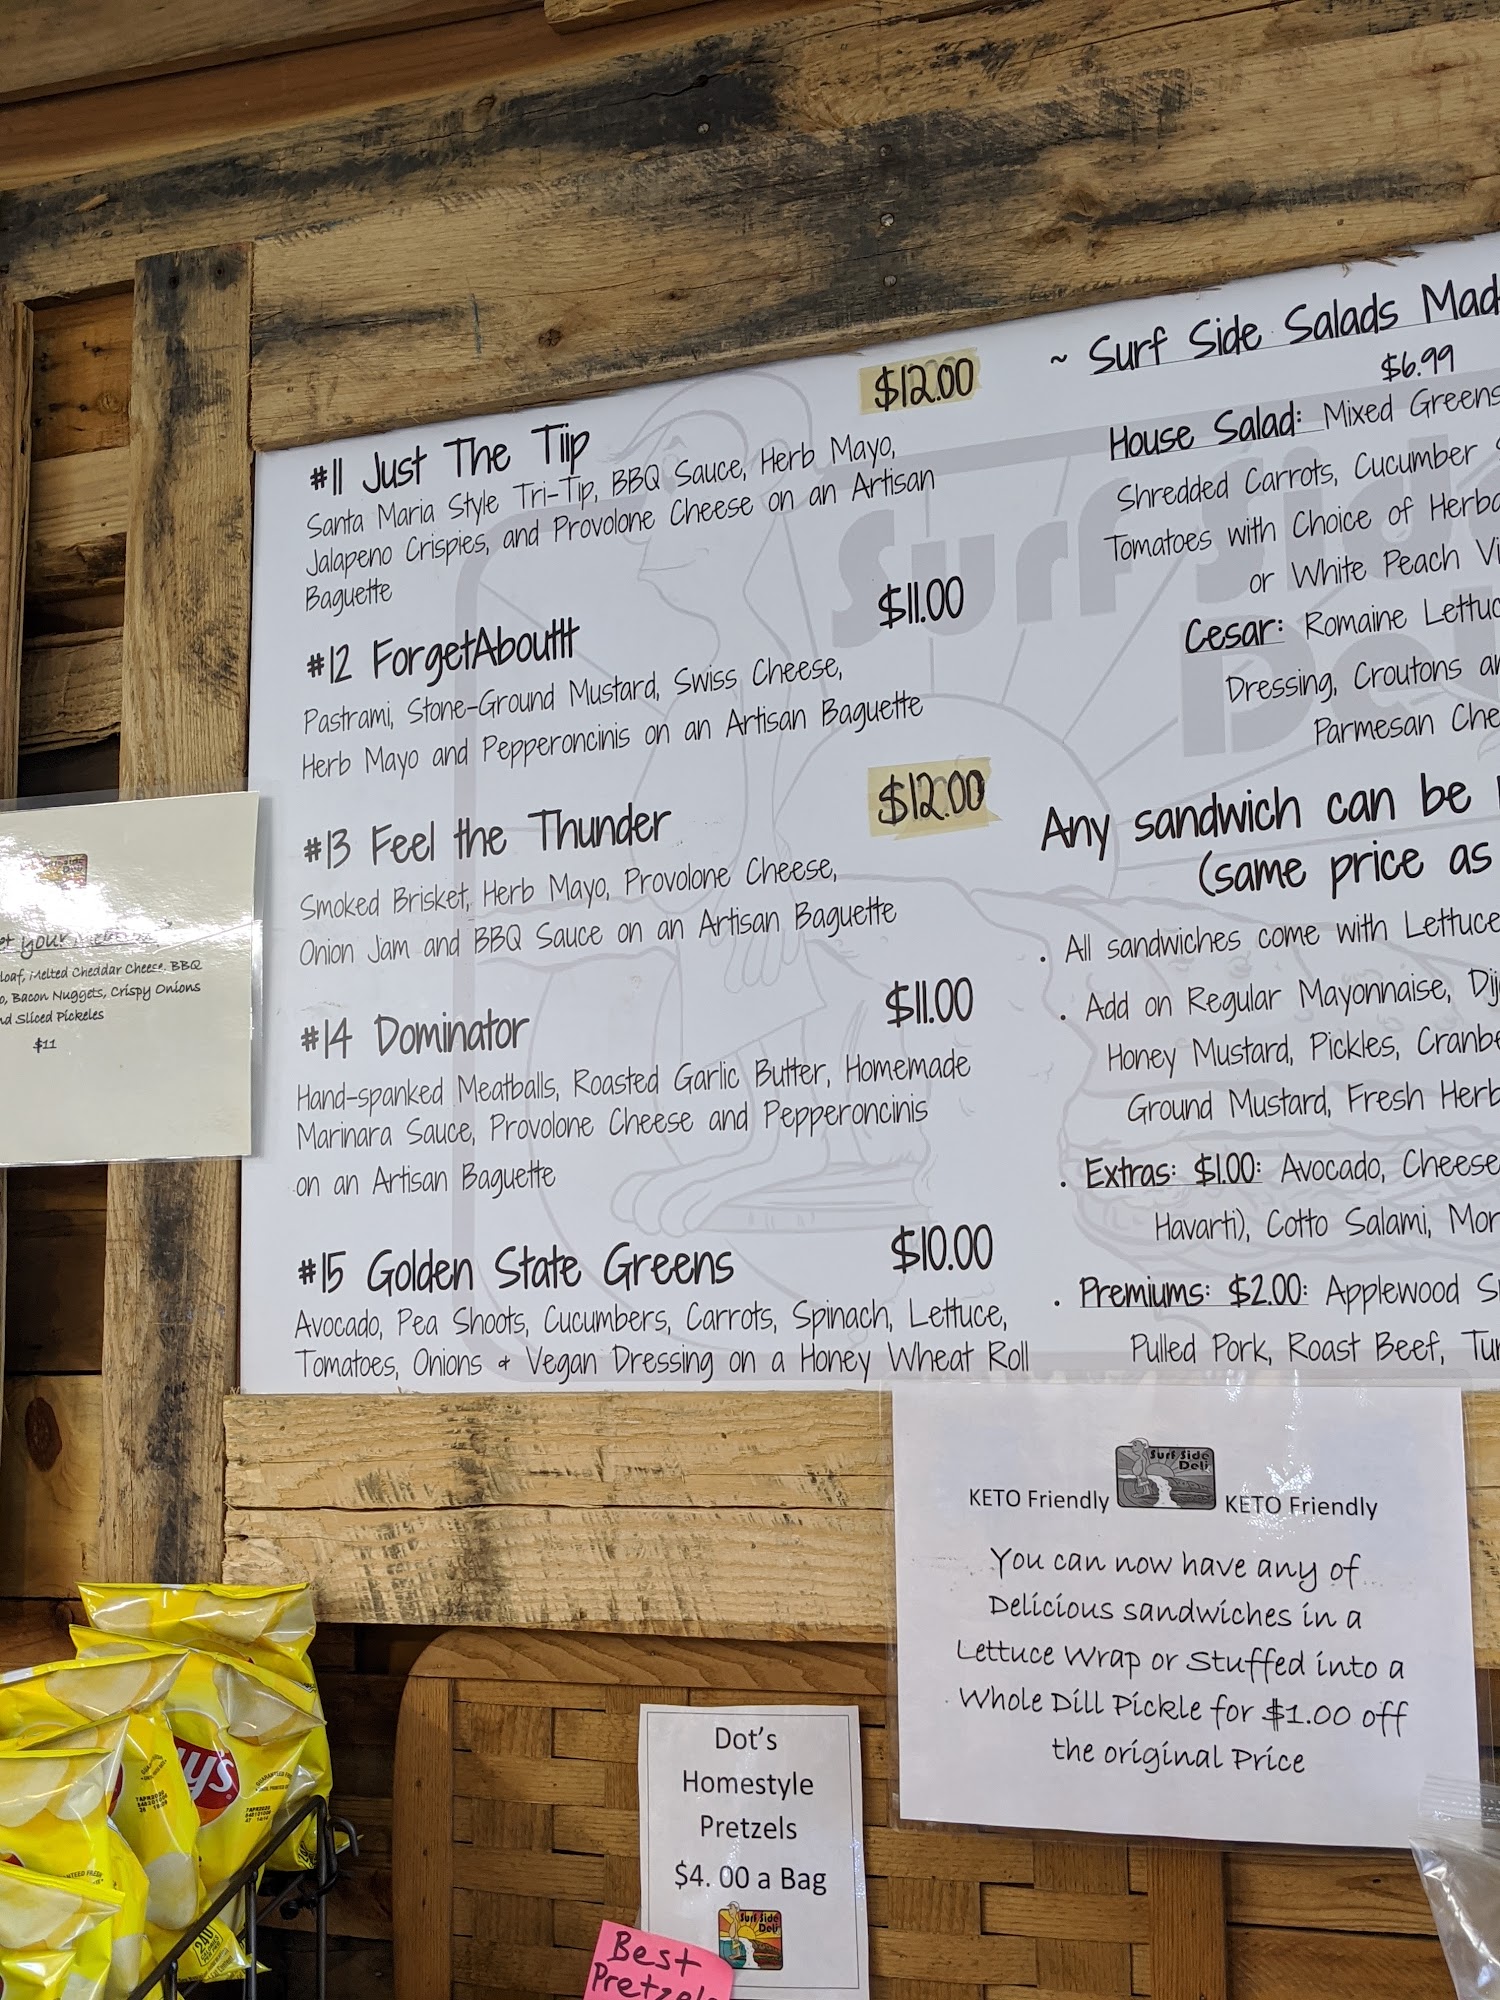 #11 Just The Tiip
$12.00
Santa Maria Style Tri-Tip, BBQ Sauce, Herb Mayo,
Jalapeno Crispies, and Provolone Cheese on an Artisan
Baguette
#12 ForgetAbouttt
$11.00
Pastrami, Stone-Ground Mustard, Swiss Cheese,
Herb Mayo and Pepperoncinis on an Artisan Baguette
#13 Feel the Thunder
$12.00
Smoked Brisket, Herb Mayo, Provolone Cheese,
Onion Jam and BBQ Sauce on an Artisan Baguette
#14 Dominator
$11.00
Hand-spanked Meatballs, Roasted Garlic Butter, Homemade
Marinara Sauce, Provolone Cheese and Pepperoncinis
on an Artisan Baguette
#15 Golden State Greens
$10.00
Avocado, Pea Shoots, Cucumbers, Carrots, Spinach, Lettuce,
Tomatoes, Onions & Vegan Dressing on a Honey Wheat Roll
~ Surf Side Salads
$6.99
House Salad: Mixed Greens
Shredded Carrots, Cucumber
Tomatoes with Choice of
or White Peach
Cesar: Romaine
Dressing, Croutons
Parmesan
Any sandwich can be
(same price as
. All sandwiches come with Lettuce
. Add on Regular Mayonnaise,
Honey Mustard, Pickles,
Ground Mustard, Fresh
. Extras: $1.00: Avocado, Cheese
Havarti), Cotto Salami,
. Premiums: $2.00: Applewood
Pulled Pork, Roast Beef,
Surf Side
your
loaf, Melted Cheddar Cheese, BBQ
Bacon Nuggets, Crispy Onions
Sliced Pickeles
$11
Surf Side
Deli
KETO Friendly KETO Friendly
You can now have any of
Delicious sandwiches in a
Lettuce Wrap or Stuffed into a
Whole Dill Pickle for $1.00 off
the original Price
Dot's
Homestyle
Pretzels
$4. 00 a Bag
Surf Side
Deli
Best
240